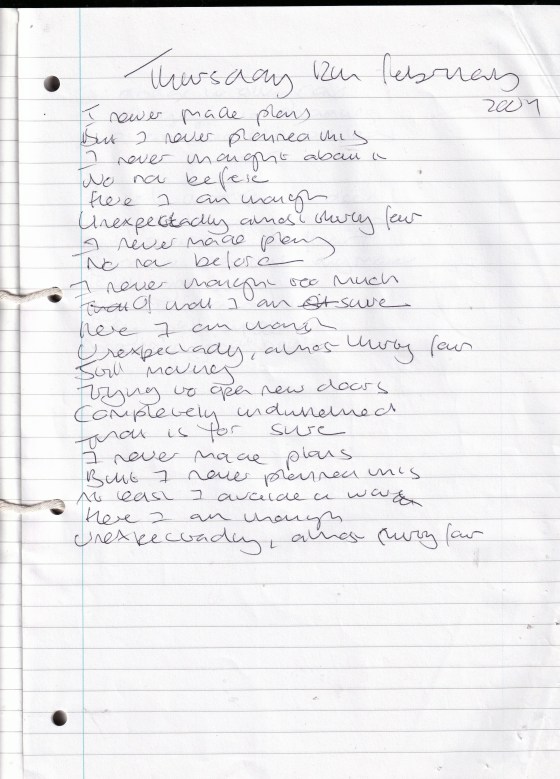 Thursday 12th February
2004
I never made plans
But I never planned this
I never thought about it
No not before
Here I am though
Unexpectadly almost thirty four
I never made plans
No not before
I never thought too much
Of that I am sure
Here I am though
Unexpectadly, almost thirty four
Still moving
Trying to open new doors
Completely undrunned
That is for sure
I never made plans
But I never planned this
At least I avoided a war
Here I am though
Unexpectadly, almost thirty four